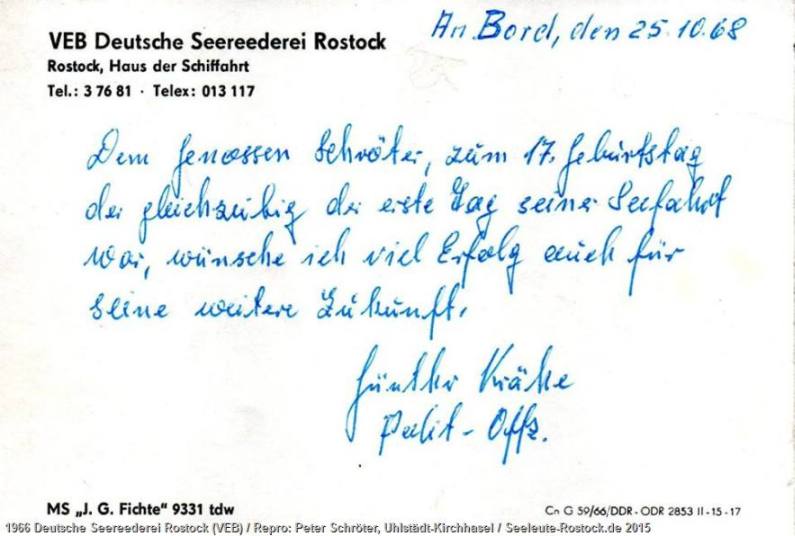 An Bord, den 25.10.68
VEB Deutsche Seereederei Rostock
Rostock, Haus der Schiffahrt
Tel.: 3 76 81 · Telex: 013 117
Dem Genossen Schröter, zum 17. Geburtstag
der gleichzeitig der erste Tag seiner Seefahrt
war, wünsche ich viel Erfolg auch für
seine weitere Zukunft.
Günther
Polit-Offz.
MS „J. G. Fichte“ 9331 tdw
Cn G 59/66/DDR - ODR 2853 II-15-17
1966 Deutsche Seereederei Rostock (VEB) / Repro: Peter Schröter, Uhlstädt-Kirchhasel / Seeleute-Rostock.de 2015